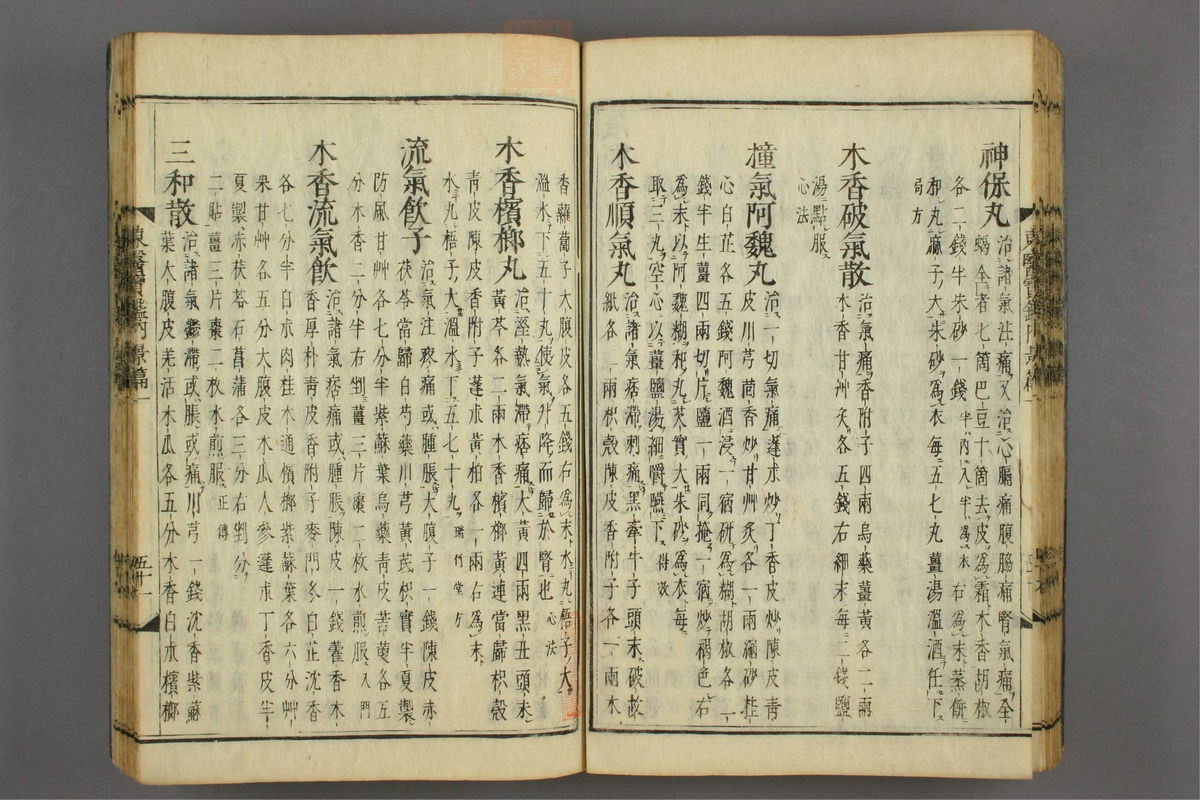 神保丸治諸氣注痛又治心膈痛腹脇痛腎氣痛全
蝎全者七箇巴豆十箇去皮爲霜木香胡椒
各二錢半朱砂一錢半內入半爲衣右爲末蒸餠
和丸麻子大朱砂爲衣每五七丸薑湯溫酒任下
局方
木香破氣散治氣痛香附子四兩烏藥薑黃各二兩
木香甘艸炙各五錢右細末每二錢鹽
湯點服
心法
撞氣阿魏丸治一切氣痛蓬朮炒丁香皮炒陳皮靑
皮川芎茴香炒甘艸炙各一兩縮砂桂
心白芷各五錢阿魏酒浸一宿硏爲糊胡椒各一
錢半生薑四兩切片鹽一兩同掩一宿炒褐色右
爲末以阿魏糊和丸芡實大朱砂爲衣每
取三丸空心以薑鹽湯細嚼嚥下得效
木香順氣丸治諸氣痞滯刺痛黑牽牛子頭末破故
紙各二兩枳殼陳皮香附子各一兩木
香蘿葍子大腹皮各五錢右爲末水丸梧子大
溫水下五十丸使氣升降而歸於腎也心法
木香檳榔丸治溼熱氣滯痞痛大黃四兩黑丑頭末
黃芩各二兩木香檳榔黃連當歸枳殼
靑皮陳皮香附子蓬朮黃柏各一兩右爲末
水丸梧子大溫水下五七十丸瑞竹堂方
流氣飮子治氣注疼痛或腫脹大腹子一錢陳皮赤
茯苓當歸白芍藥川芎黃芪枳實半夏製
防風甘艸各七分半紫蘇葉烏藥靑皮苦莄各五
分木香二分半右剉薑三片棗二枚水煎服入門
木香流氣飮治諸氣痞痛或腫脹陳皮一錢藿香木
香厚朴靑皮香附子麥門冬白芷沈香
各七分半白朮肉桂木通檳榔紫蘇葉各六分艸
果甘艸各五分大腹皮木瓜人參蓬朮丁香皮半
夏製赤茯苓石菖蒲各三分右剉分
二貼薑三片棗二枚水煎服正傳
三和散治諸氣鬱滯或脹或痛川芎一錢沈香紫蘇
葉大腹皮羌活木瓜各五分木香白朮檳榔
東醫寶鑑內景篇一
五十一